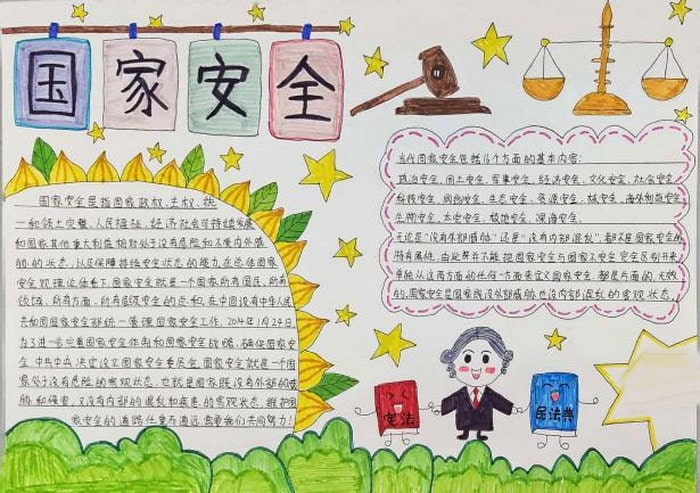 国家安全
国家安全是指国家政权、主权、统
一和领土完整、人民福祉、经济社会可持续发展
和国家其他重大利益相对处于没有危险和不受内外威
胁的状态，以及保障持续安全状态的能力。在总体国家
安全观理论体系下，国家安全就是一个国家所有国民、所有
领域、所有方面、所有层级安全的总和。在中国设有中华人民
共和国国家安全部统一管理国家安全工作。2014年1月24日，
为了进一步完善国家安全体制和国家安全战略，确保国家安
全，中共中央决定设立国家安全委员会。国家安全就是一个国
家处于没有危险的客观状态，也就是国家既没有外部的威
胁和侵害，又没有内部的混乱和疾患的客观状态，维护国
家安全的道路任重而道远，需要我们共同努力！
当代国家安全包括16个方面的基本内容：
政治安全、国土安全、军事安全、经济安全、文化安全、社会安全、
科技安全、网络安全、生态安全、资源安全、核安全、海外利益安全、
生物安全、太空安全、极地安全、深海安全。
无论是“没有外部威胁”还是“没有内部混乱”，都不是国家安全的
特有属性，由此并不能把国家安全与国家不安全区别开来
单独从这两方面的任何一方面来定义国家安全，都是片面的、无效
的。国家安全是国家既没外部威胁也没内部混乱的客观状态。
宪法
民法典